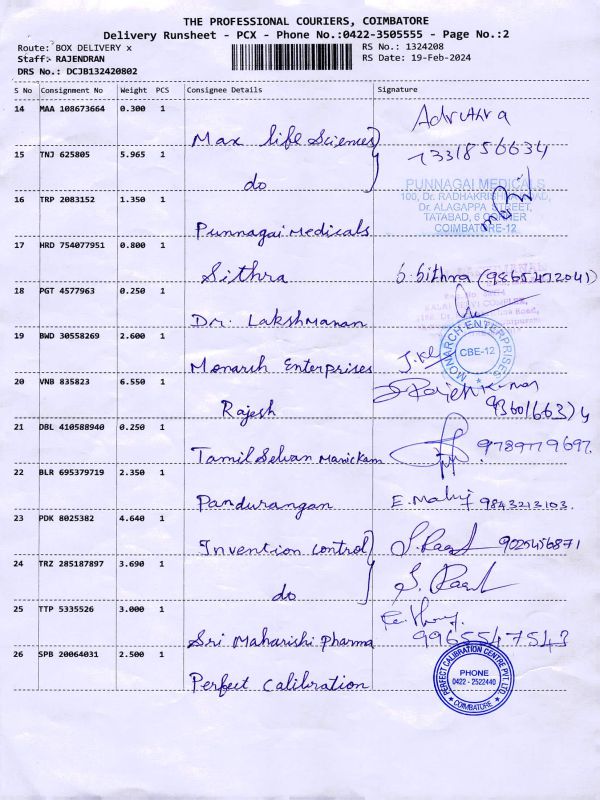 THE PROFESSIONAL COURIERS, COIMBATORE
Delivery Runsheet - PCX - Phone No.:0422-3505555 - Page No.:2
Route: BOX DELIVERY x
RS No.: 1324208
Staff:- RAJENDRAN
RS Date: 19-Feb-2024
DRS No.: DCJB132420802
S No Consignment No Weight PCS Consignee Details Signature
14 MAA 108673664 0.300 1
Max life Sciences
Adruthra
15 TNJ 625805 5.965 1
do
7331856634
16 TRP 2083152 1.350 1
Punnagai Medicals
PUNNAGAI MEDICALS
100, Dr. RADHAKRISHNAN ROAD,
Dr. ALAGAPPA STREET,
TATABAD, 6 CORNER
COIMBATORE-12
17 HRD 754077951 0.800 1
Sithra
S. Sithra (9865472041)
18 PGT 4577963 0.250 1
Dr. Lakshmanan
19 BWD 30558269 2.600 1
Monarsh Enterprises
MONARCH ENTERPRISES
CBE-12
20 VNB 835823 6.550 1
Rajesh
21 DBL 410588940 0.250 1
Tamil Selvan Manickam
22 BLR 695379719 2.350 1
Pandurangan
9843213103.
23 PDK 8025382 4.640 1
Invention Control
9025456871
24 TRZ 285187897 3.690 1
do
25 TTP 5335526 3.000 1
Sri Maharishi Pharma
9965547543
26 SPB 20064031 2.500 1
Perfect Calibration
PERFECT CALIBRATION CENTRE PVT. LTD.
PHONE
0422 - 2522440
COIMBATORE